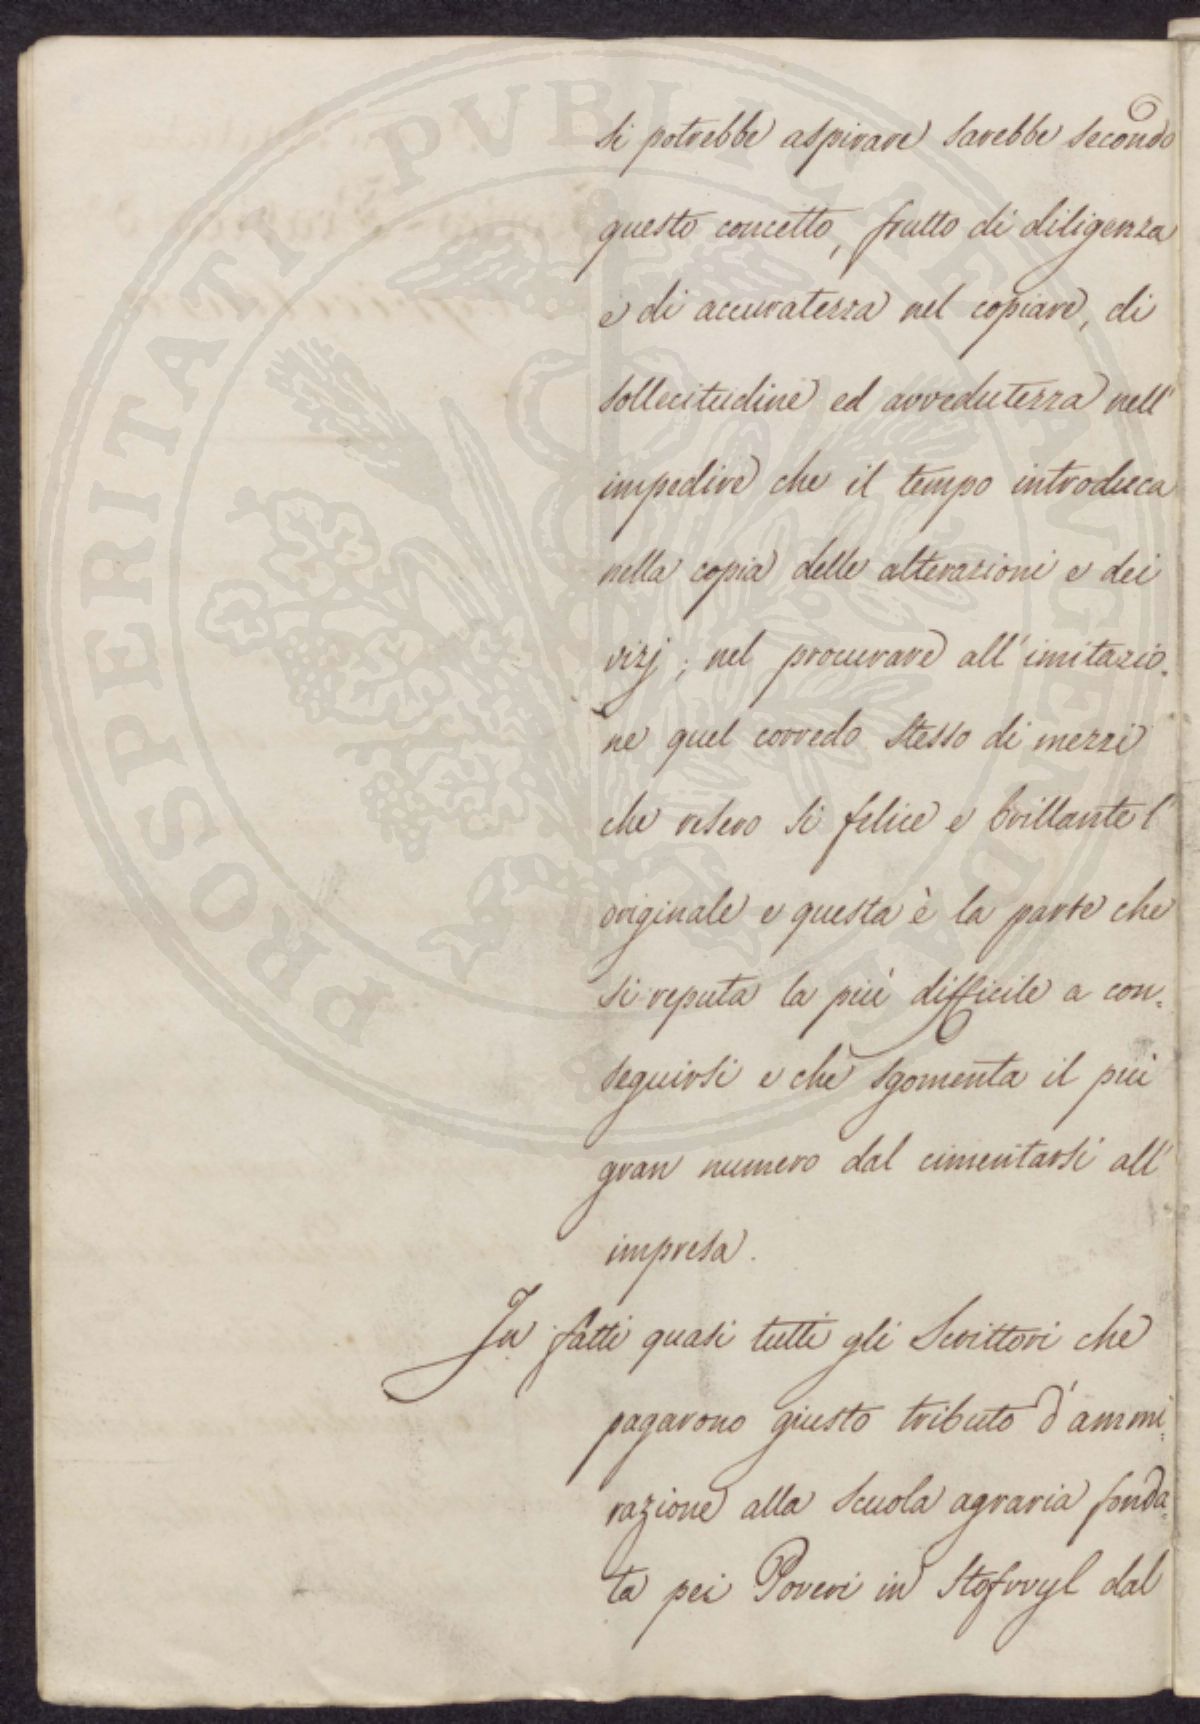 si potrebbe aspirare sarebbe secondo
questo concetto, frutto di diligenza
e di accuratezza nel copiare, di
sollecitudine ed avvedutezza nell'
impedire che il tempo introduca
nella copia delle alterazioni e dei
vizj; nel procurare all'imitazio=
ne quel corredo stesso di mezzi
che resero si felice e brillante l'
originale e questa è la parte che
si reputa la più difficile a con=
seguirsi e che sgomenta il più
gran numero dal cimentarsi all'
impresa.
In fatti quasi tutti gli Scrittori che
pagarono giusto tributo d'ammi=
razione alla scuola agraria fonda=
ta pei Poveri in Stofvvyl dal
PROSPERITATI PVBLICAE AVGENDAE